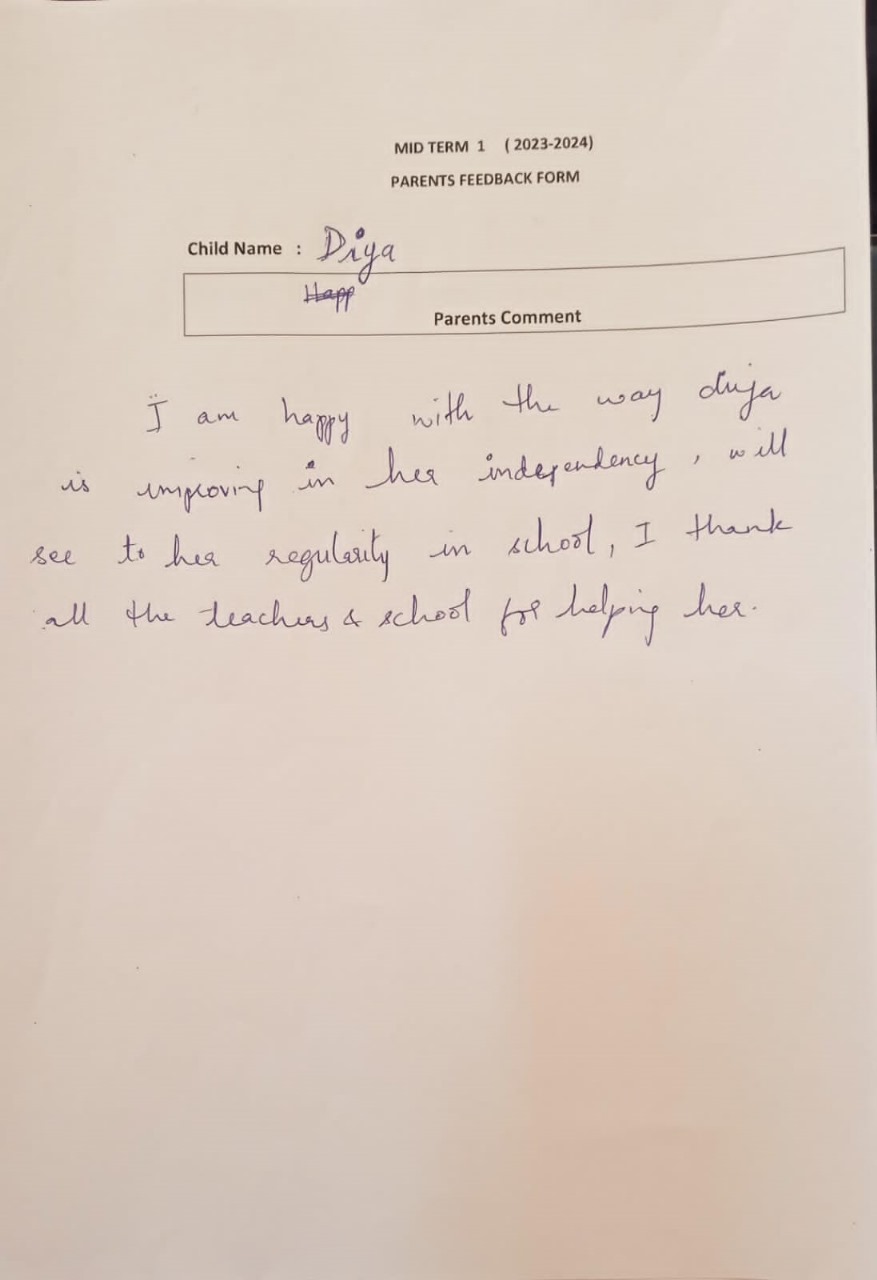 MID TERM 1 ( 2023-2024)
PARENTS FEEDBACK FORM
Child Name : Diya
Happ
Parents Comment
I am happy with the way diya
is improving in her independency, will
see to her regularity in school, I thank
all the teachers & school for helping her.